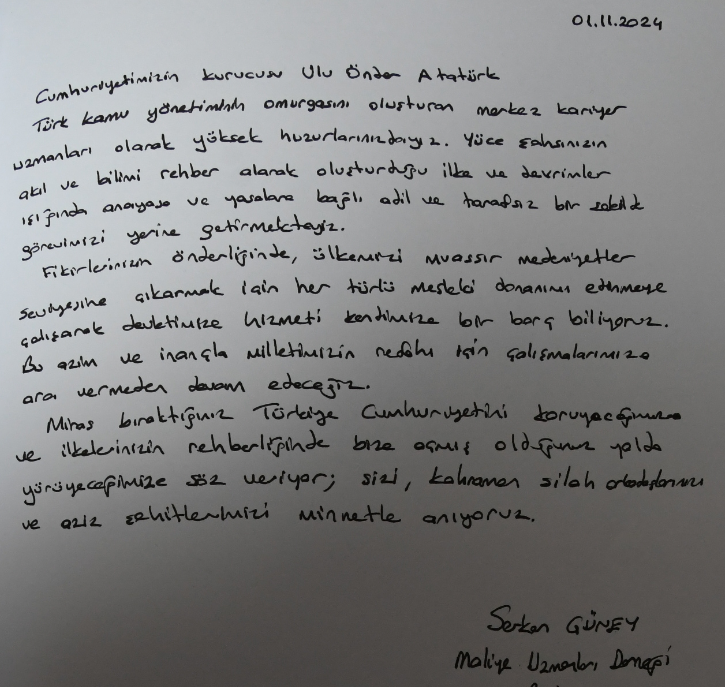 01.11.2024
Cumhuriyetimizin kurucusu Ulu Önder Atatürk
Türk kamu yönetiminin omurgasını oluşturan merkez kariyer
uzmanları olarak yüksek huzurlarınızdayız. Yüce şahsınızın
akıl ve bilimi rehber alarak oluşturduğu ilke ve devrimler
ışığında anayasa ve yasalara bağlı adil ve tarafsız bir şekilde
görevimizi yerine getirmekteyiz.
Fikirlerinizin önderliğinde, ülkemizi muassır medeniyetler
seviyesine çıkarmak için her türlü mesleki donanımı edinmeye
çalışarak devletimize hizmeti kendimize bir borç biliyoruz.
Bu azim ve inançla milletimizin refahı için çalışmalarımıza
ara vermeden devam edeceğiz.
Miras bıraktığınız Türkiye Cumhuriyetini koruyacağımıza
ve ilkelerinizin rehberliğinde bize açmış olduğunuz yolda
yürüyeceğimize söz veriyor; sizi, kahraman silah arkadaşlarınızı
ve aziz şehitlerimizi minnetle anıyoruz.
Serkan GÜNEY
Maliye Uzmanları Derneği